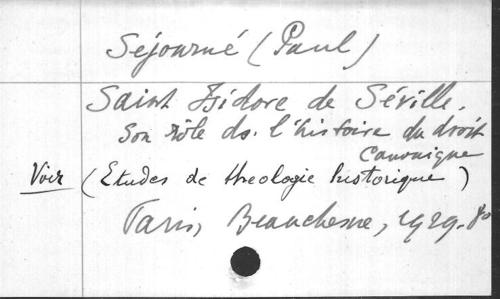 Séjourné (Paul)
Saint Isidore de Séville.
Son rôle ds. l'histoire du droit
canonique
Voir (Etudes de theologie historique)
Paris, Beauchesne, 1929. 8°